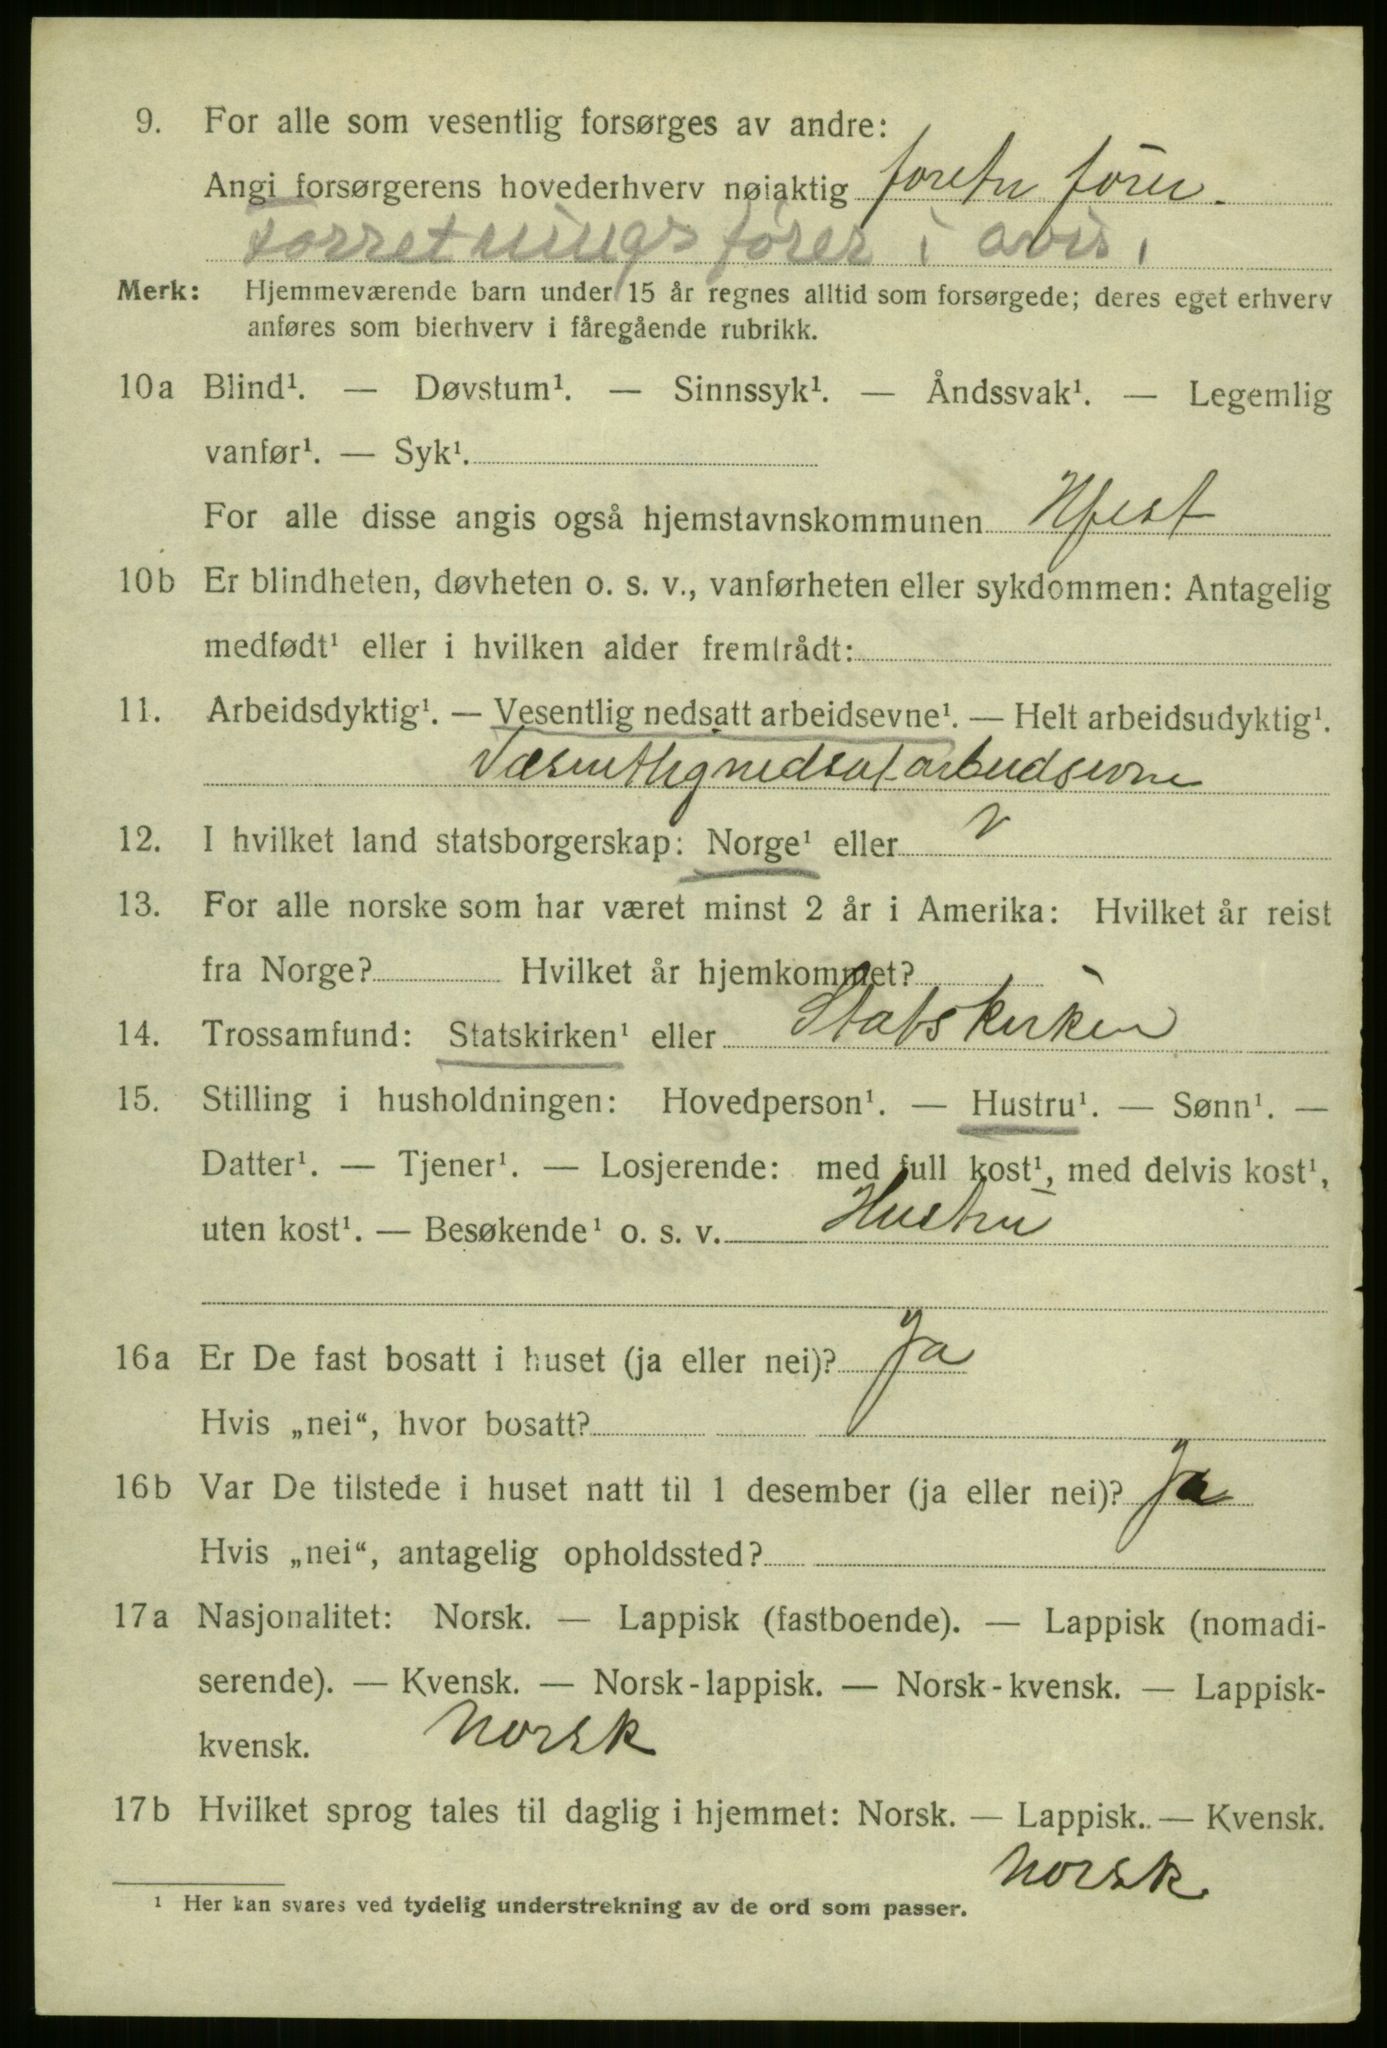 9. For alle som vesentlig forsørges av andre:
Angi forsørgerens hovederhverv nøiaktig foretn förer.
Forretningsfører i avis,
Merk: Hjemmeværende barn under 15 år regnes alltid som forsørgede; deres eget erhverv
anføres som bierhverv i føregående rubrikk.
10a Blind¹. — Døvstum¹. — Sinnssyk¹. — Åndssvak¹. — Legemlig
vanfør¹. — Syk¹.
For alle disse angis også hjemstavnskommunen
10b Er blindheten, døvheten o. s. v., vanførheten eller sykdommen: Antagelig
medfødt¹ eller i hvilken alder fremtrådt:
11. Arbeidsdyktig¹. — Vesentlig nedsatt arbeidsevne¹. — Helt arbeidsudyktig¹.
Væsentlig nedsat arbeidsevne
12. I hvilket land statsborgerskap: Norge¹ eller
13. For alle norske som har været minst 2 år i Amerika: Hvilket år reist
fra Norge? Hvilket år hjemkommet?
14. Trossamfund: Statskirken¹ eller Statskirken
15. Stilling i husholdningen: Hovedperson¹. — Hustru¹. — Sønn¹. —
Datter¹. — Tjener¹. — Losjerende: med full kost¹, med delvis kost¹,
uten kost¹. — Besøkende¹ o. s. v. Hustru
16a Er De fast bosatt i huset (ja eller nei)? Ja
Hvis „nei“, hvor bosatt?
16b Var De tilstede i huset natt til 1 desember (ja eller nei)? Ja
Hvis „nei“, antagelig opholdssted?
17a Nasjonalitet: Norsk. — Lappisk (fastboende). — Lappisk (nomadi-
serende). — Kvensk. — Norsk-lappisk. — Norsk-kvensk. — Lappisk-
kvensk. Norsk
17b Hvilket sprog tales til daglig i hjemmet: Norsk. — Lappisk. — Kvensk.
Norsk
¹ Her kan svares ved tydelig understrekning av de ord som passer.